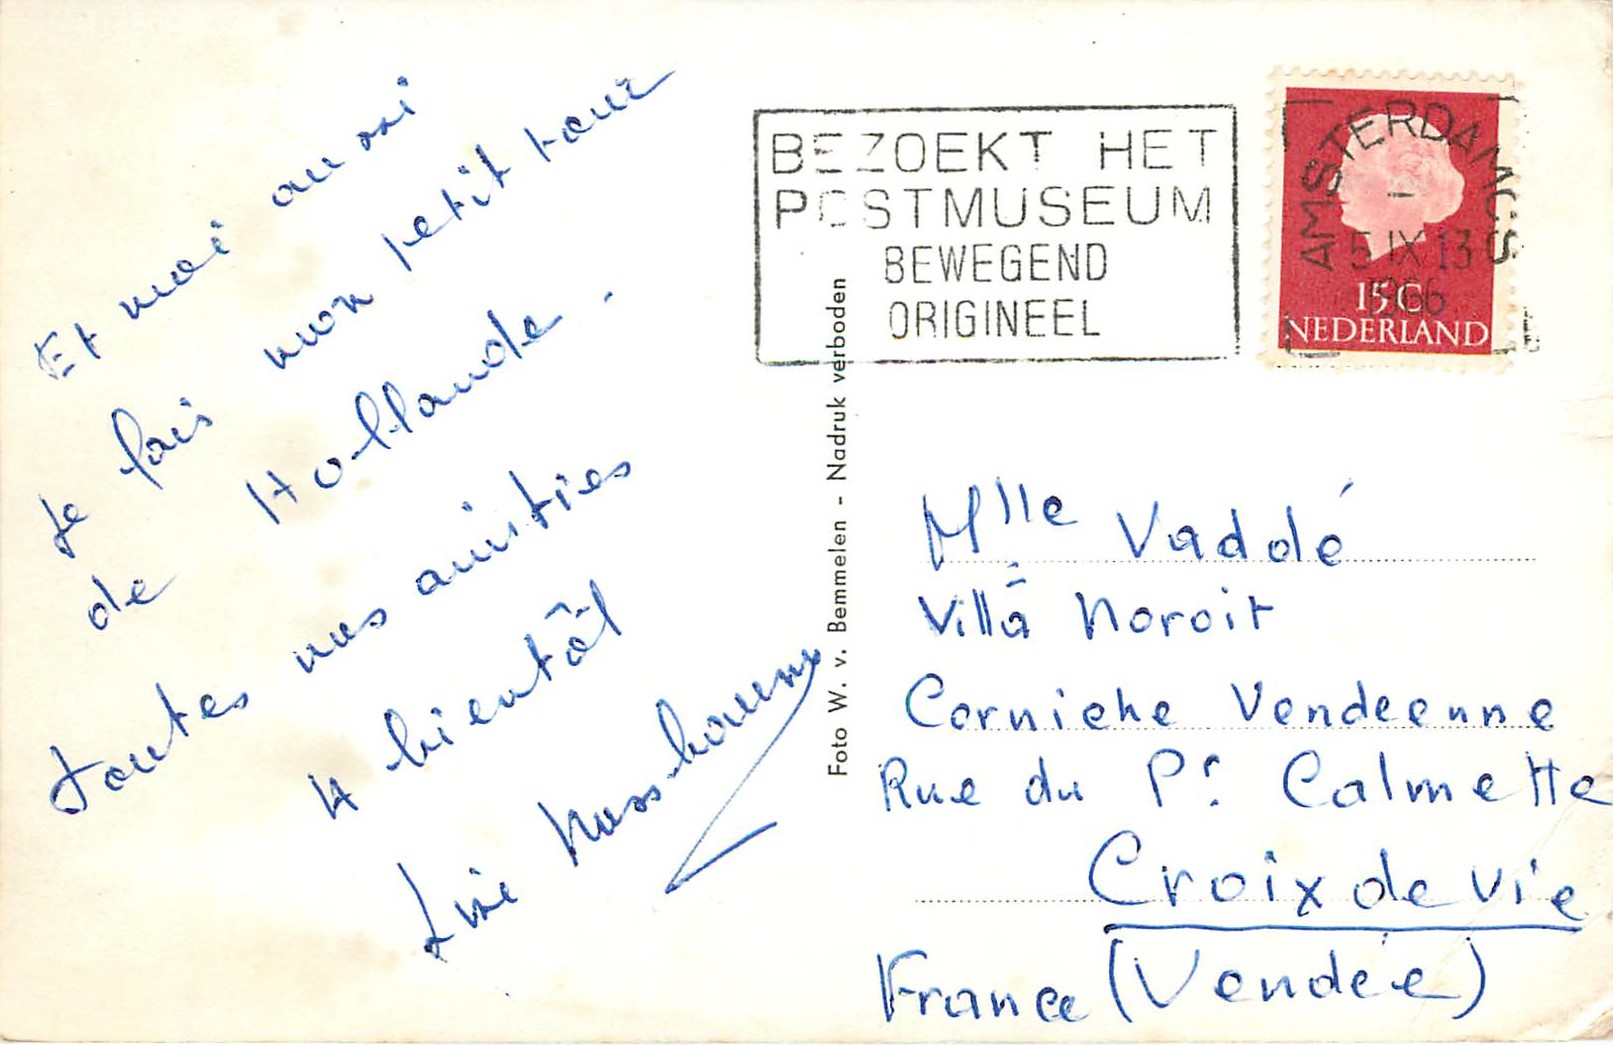 Et moi aussi
Je fais mon petit tour
de Hollande.
toutes mes amitiés
A bientôt
BEZOEKT HET
POSTMUSEUM
BEWEGEND
ORIGINEEL
AMSTERDAM C.S
5 IX 13
1966
15 C
NEDERLAND
Foto W. v. Bemmelen - Nadruk verboden
Mlle Vaddé
Villa Noroit
Corniche Vendeenne
Rue du Pr. Calmette
Croix de vie
France (Vendée)